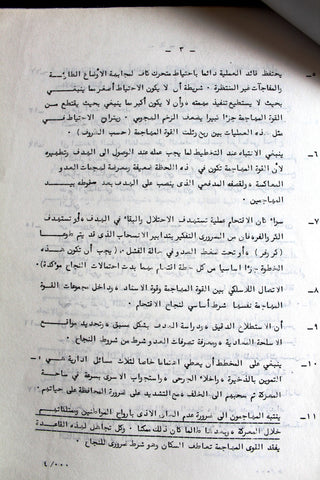 - ٣ -
٥- يحتفظ قائد العملية دائما باحتياط متحرك كاف لمجابهة الاوضاع الطارئة
والمفاجآت غير المنتظرة . شريطة أن لا يكون الاحتياط أصغر مما ينبغي
بحيث لا يستطيع تنفيذ مهمته وأن لا يكون أكبر مما ينبغي بحيث يقتطع من
القوة المهاجمة جزءا كبيرا يضعف الزخم الهجومي . ويتراوح الاحتياط في
مثل هذه العمليات بين ربع وثلث القوة المهاجمة (حسب الظروف) .
٦- ينبغي الانتباه عند التخطيط لما يجب عمله عند الوصول الى الهدف وتطهيره
لأن القوة المهاجمة تكون في هذه اللحظة ضعيفة ومعرضة لهجمات العدو
المعاكسة ولقصفه المدفعي الذي ينصب على الهدف بعد سقوطه بيد
المهاجمين .
٧- سواء كان الاقتحام عملية تستهدف الاحتلال والبقاء في الهدف أو تستهدف
الكر والفر فان من الضروري التفكير بتدابير الانسحاب الذي قد يتم طوعا
(كر وفر) أو تحت ضغط العدو في حالة الفشل . (يجب أن تكون هذه
الخطوة جزءا اساسيا من كل خطة اقتحام مهما بدت احتمالات النجاح مؤكدة).
٨- الاتصال اللاسلكي بين القوة المهاجمة وقوة الاسناد وداخل مجموعات القوة
المهاجمة نفسها شرط أساسي لنجاح الاقتحام .
٩- أن الاستطلاع الدقيق ودراسة الهدف بشكل مسبق وتحديد مواقع
الاسلحة المعادية ومعرفة تصرفات العدو شرط من شروط النجاح .
١٠- ينبغي على المخطط أن يعطي اهتماما خاصا لثلاث مسائل ادارية هي :
التموين بالذخيرة واخلاء الجرحى واستجواب الاسرى بسرعة في ساحة
المعركة ثم سحبهم الى الخلف مع التشديد على ضرورة المحافظة على حياتهم .
١١- ينتبه المهاجمون الى ضرورة عدم الحاق الاذى بارواح المواطنين وممتلكاتهم
خلال المعركة وبعدها طالما كان ذلك ممكنا . وكل تجاهل لهذه القاعدة
يفقد القوى المهاجمة تعاطف السكان وهو شرط ضروري للنجاح .
٤/٠٠٠